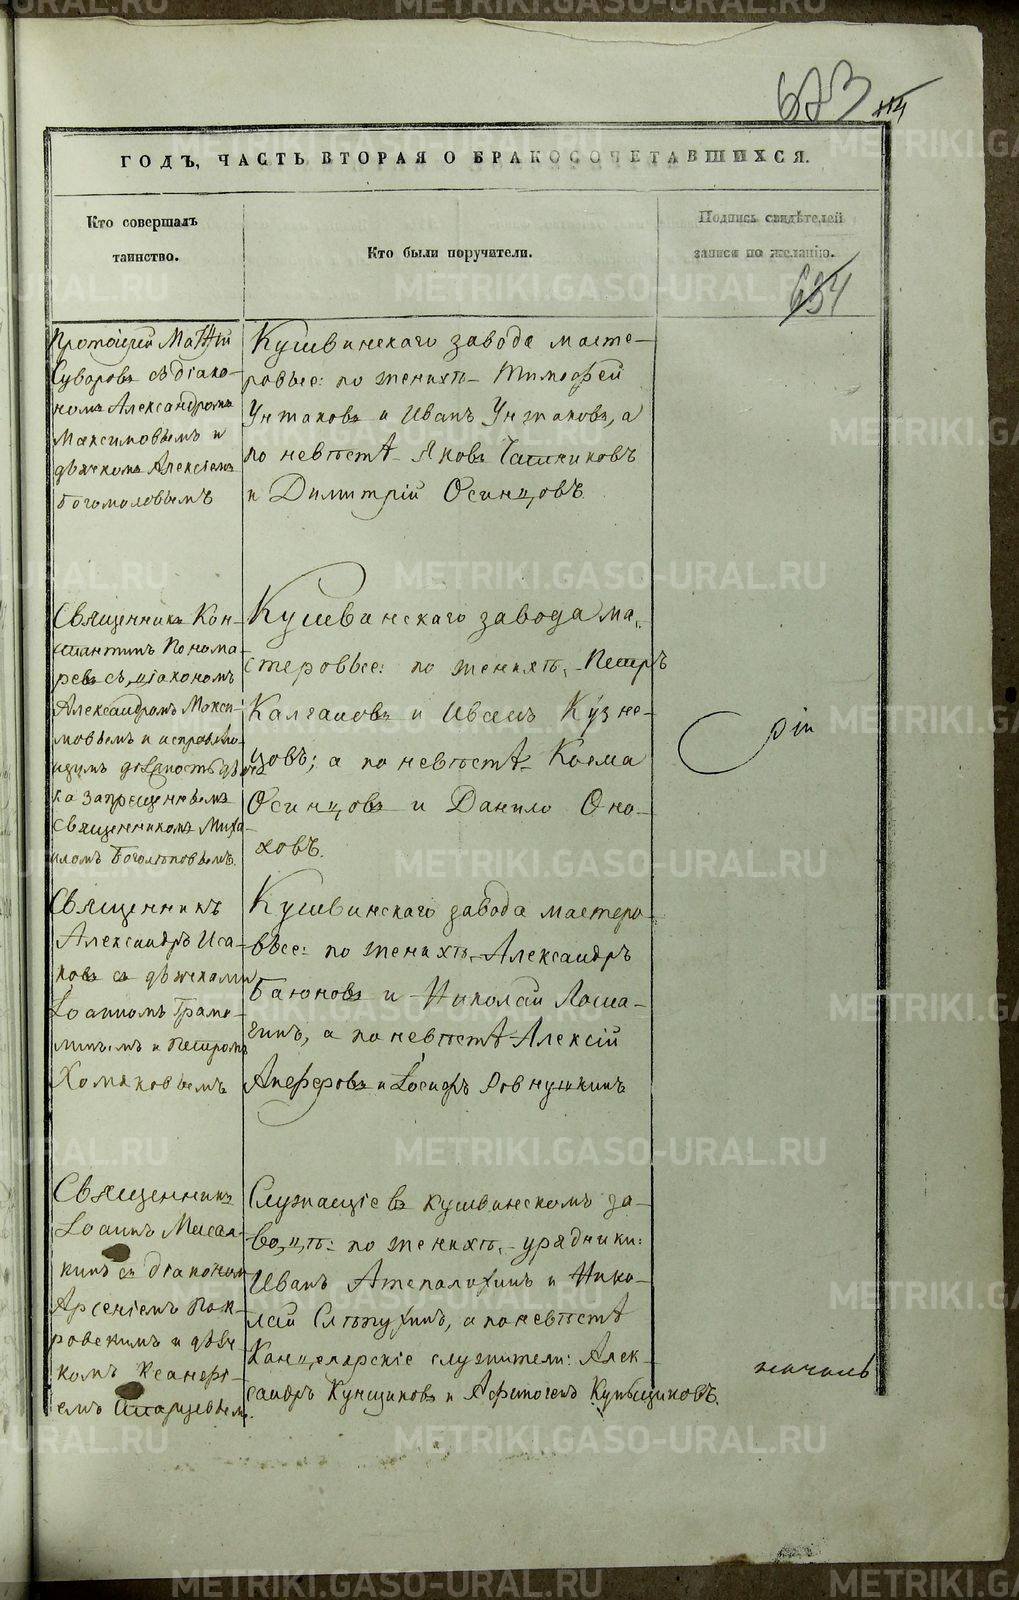 673
ГОДЪ, ЧАСТЬ ВТОРАЯ О БРАКОСОЧЕТАВШИХСЯ.
Кто совершалъ
таинство.
Кто были поручители.
Подпись свидѣтелей
записи по желанію.
Протоіерей
Суворовъ съ діако-
номъ Александромъ
Максимовымъ и
дьячкомъ Алексіемъ
Богомоловымъ
Кушвинскаго завода масте-
ровые: по женихѣ - Тимофей
Унжаковъ и Иванъ Унжаковъ, а
по невѣстѣ - Яковъ
и Димитрій Осинцовъ.
Священникъ Кон-
стантинъ Понома
ревъ съ діакономъ
Александромъ Макси
мовымъ и исправляю
щимъ должность дьяч
ка запрещеннымъ
священникомъ Миха-
иломъ Боголѣповымъ.
Кушвинскаго завода ма-
стеровые: по женихѣ, - Петръ
Калгановъ и Иванъ Кузне-
цовъ; а по невѣстѣ - Козма
Осинцовъ и Данило Оно-
ховъ.
Священникъ
Александръ Иса-
ковъ съ дьячками
Іоанномъ
и Петромъ
Хомяковымъ
Кушвинскаго завода мастеро-
вые: по женихѣ, - Александръ
Баюновъ и Николай Лоша-
гинъ, а по невѣстѣ - Алексій
Анферовъ и Іосифъ Ровнушкинъ
Священникъ
Іоаннъ
съ діакономъ
Арсеніемъ Пок-
ровскимъ и дьяч
комъ
Старцевымъ.
Служащіе въ Кушвинскомъ за-
водѣ: по женихѣ, - урядники:
Иванъ и Нико-
лай а по невѣстѣ
Канцелярскіе служители: Алек-
сандръ Кунщиковъ и Афиногенъ Купыщиковъ.
METRIKI.GASO-URAL.RU